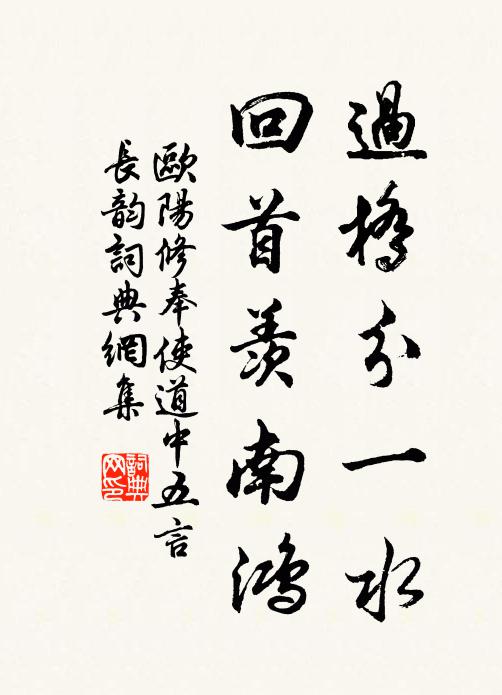 過橋分一水
回首羨南鴻
歐陽修奉使道中五言
長韵詞典網集
詞典网印